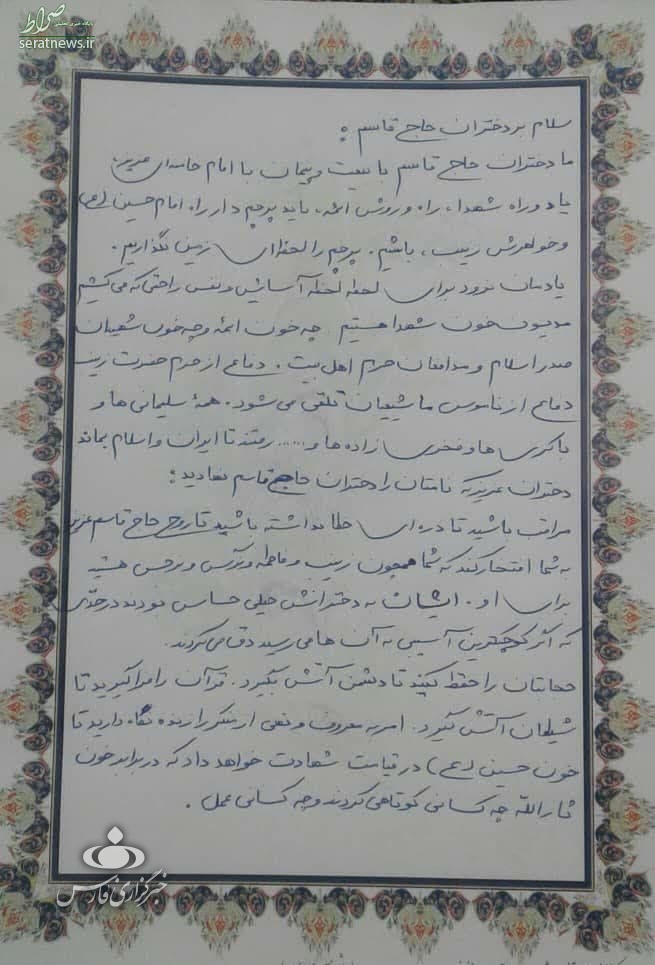 صراط
seratnews.ir
سلام بر دختران حاج قاسم :
ما دختران حاج قاسم با بیعت و پیمان با امام خامنه‌ای عزیز،
یاد و راه شهدا، راه و روش ائمه، باید پرچم دار راه امام حسین (ع)
و خواهرش زینب، باشیم. پرچم را لحظه‌ای زمین نگذاریم.
یادمان نرود برای لحظه لحظه آسایش و نفس راحتی که می کشیم
مدیون خون شهدا هستیم. چه خون ائمه و چه خون شیعیان
صدر اسلام و مدافعان حرم اهل بیت. دفاع از حرم حضرت زینب
دفاع از ناموس ما شیعیان تلقی می شود. همه سلیمانی ها و
باکری ها و فخری زاده ها و...... رفتند تا ایران و اسلام بماند
دختران عزیز که نامتان را دختران حاج قاسم نهادید :
مراقب باشید تا ذره ای خطا نداشته باشید تا روح حاج قاسم عزیز
به شما افتخار کند که شما همچون زینب و فاطمه و نرگس هستید
برای او. ایشان به دخترانش خیلی حساس بودند در حدی
که اگر کوچکترین آسیبی به آن ها می رسید دق می کردند.
حجابتان را حفظ کنید تا دشمن آتش بگیرد. قرآن را فرا گیرید تا
شیطان آتش بگیرد. امر به معروف و نهی از منکر را زنده نگاه دارید تا
خون حسین (ع) در قیامت شهادت خواهد داد که در برابر خون
ثارالله چه کسانی کوتاهی کردند و چه کسانی عمل.
خبرگزاری فارس